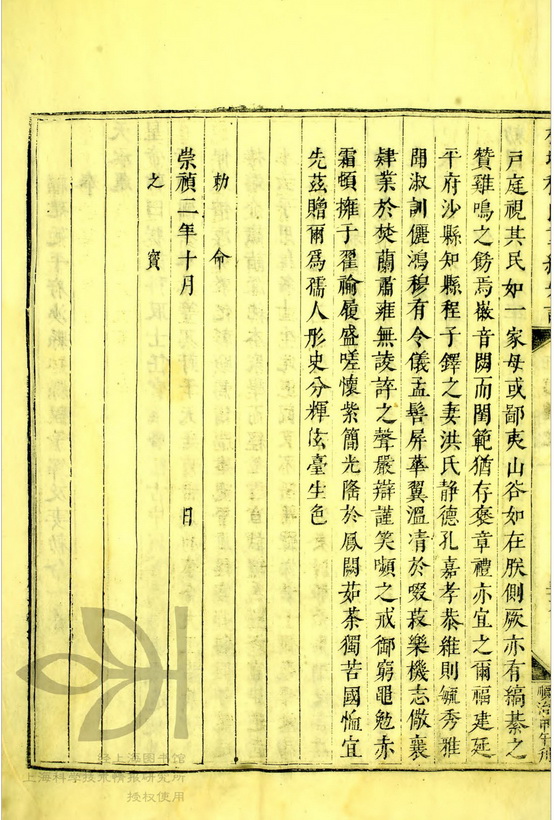 戸庭視其民如一家母或鄙夷山谷如在朕側厥亦有縞綦之
贊雞鳴之餝焉徽音閟而閨範猶存褒章禮亦宜之爾福建延
平府沙縣知縣程子鐸之妻洪氏静德孔嘉孝恭維則毓秀雅
閒淑訓儷鴻穆有令儀孟髻屏華翼溫凊於啜菽樂機志儆襄
肄業於焚蘭肅雍無諛誶之聲嚴辯謹笑嚬之戒御窮黽勉赤
霜頓擁于翟褕履盛嗟懷紫簡光隆於鳳闕茹荼獨苦國恤宜
先茲贈爾為孺人彤史分輝泫臺生色
勅命
崇禎二年十月 日
之寳
順治甲午刊
上海图书馆
上海科学技术情报研究所
授权使用